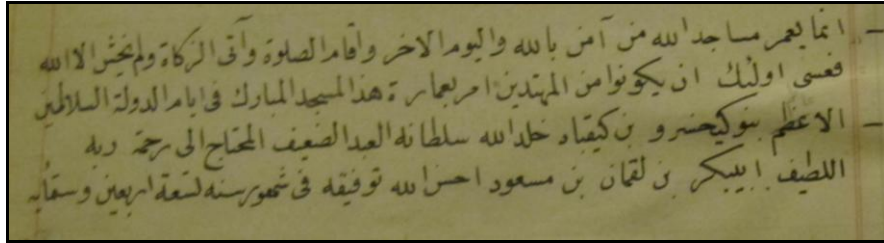 انما يعمر مساجد الله من آمن بالله واليوم الاخر واقام الصلوة وآتى الزكاة ولم يخش الا الله
فعسى اولئك ان يكونوا من المهتدين امر بعمارة هذا المسجد المبارك فى ايام الدولة السلاطين
الاعظم بنو كيخسرو بن كيقباد خلد الله سلطانه العبد الضعيف المحتاج الى رحمة ربه
اللطيف ابيبكر بن لقمان بن مسعود احسن الله توفيقه فى شهور سنه تسعة اربعين وستمايه